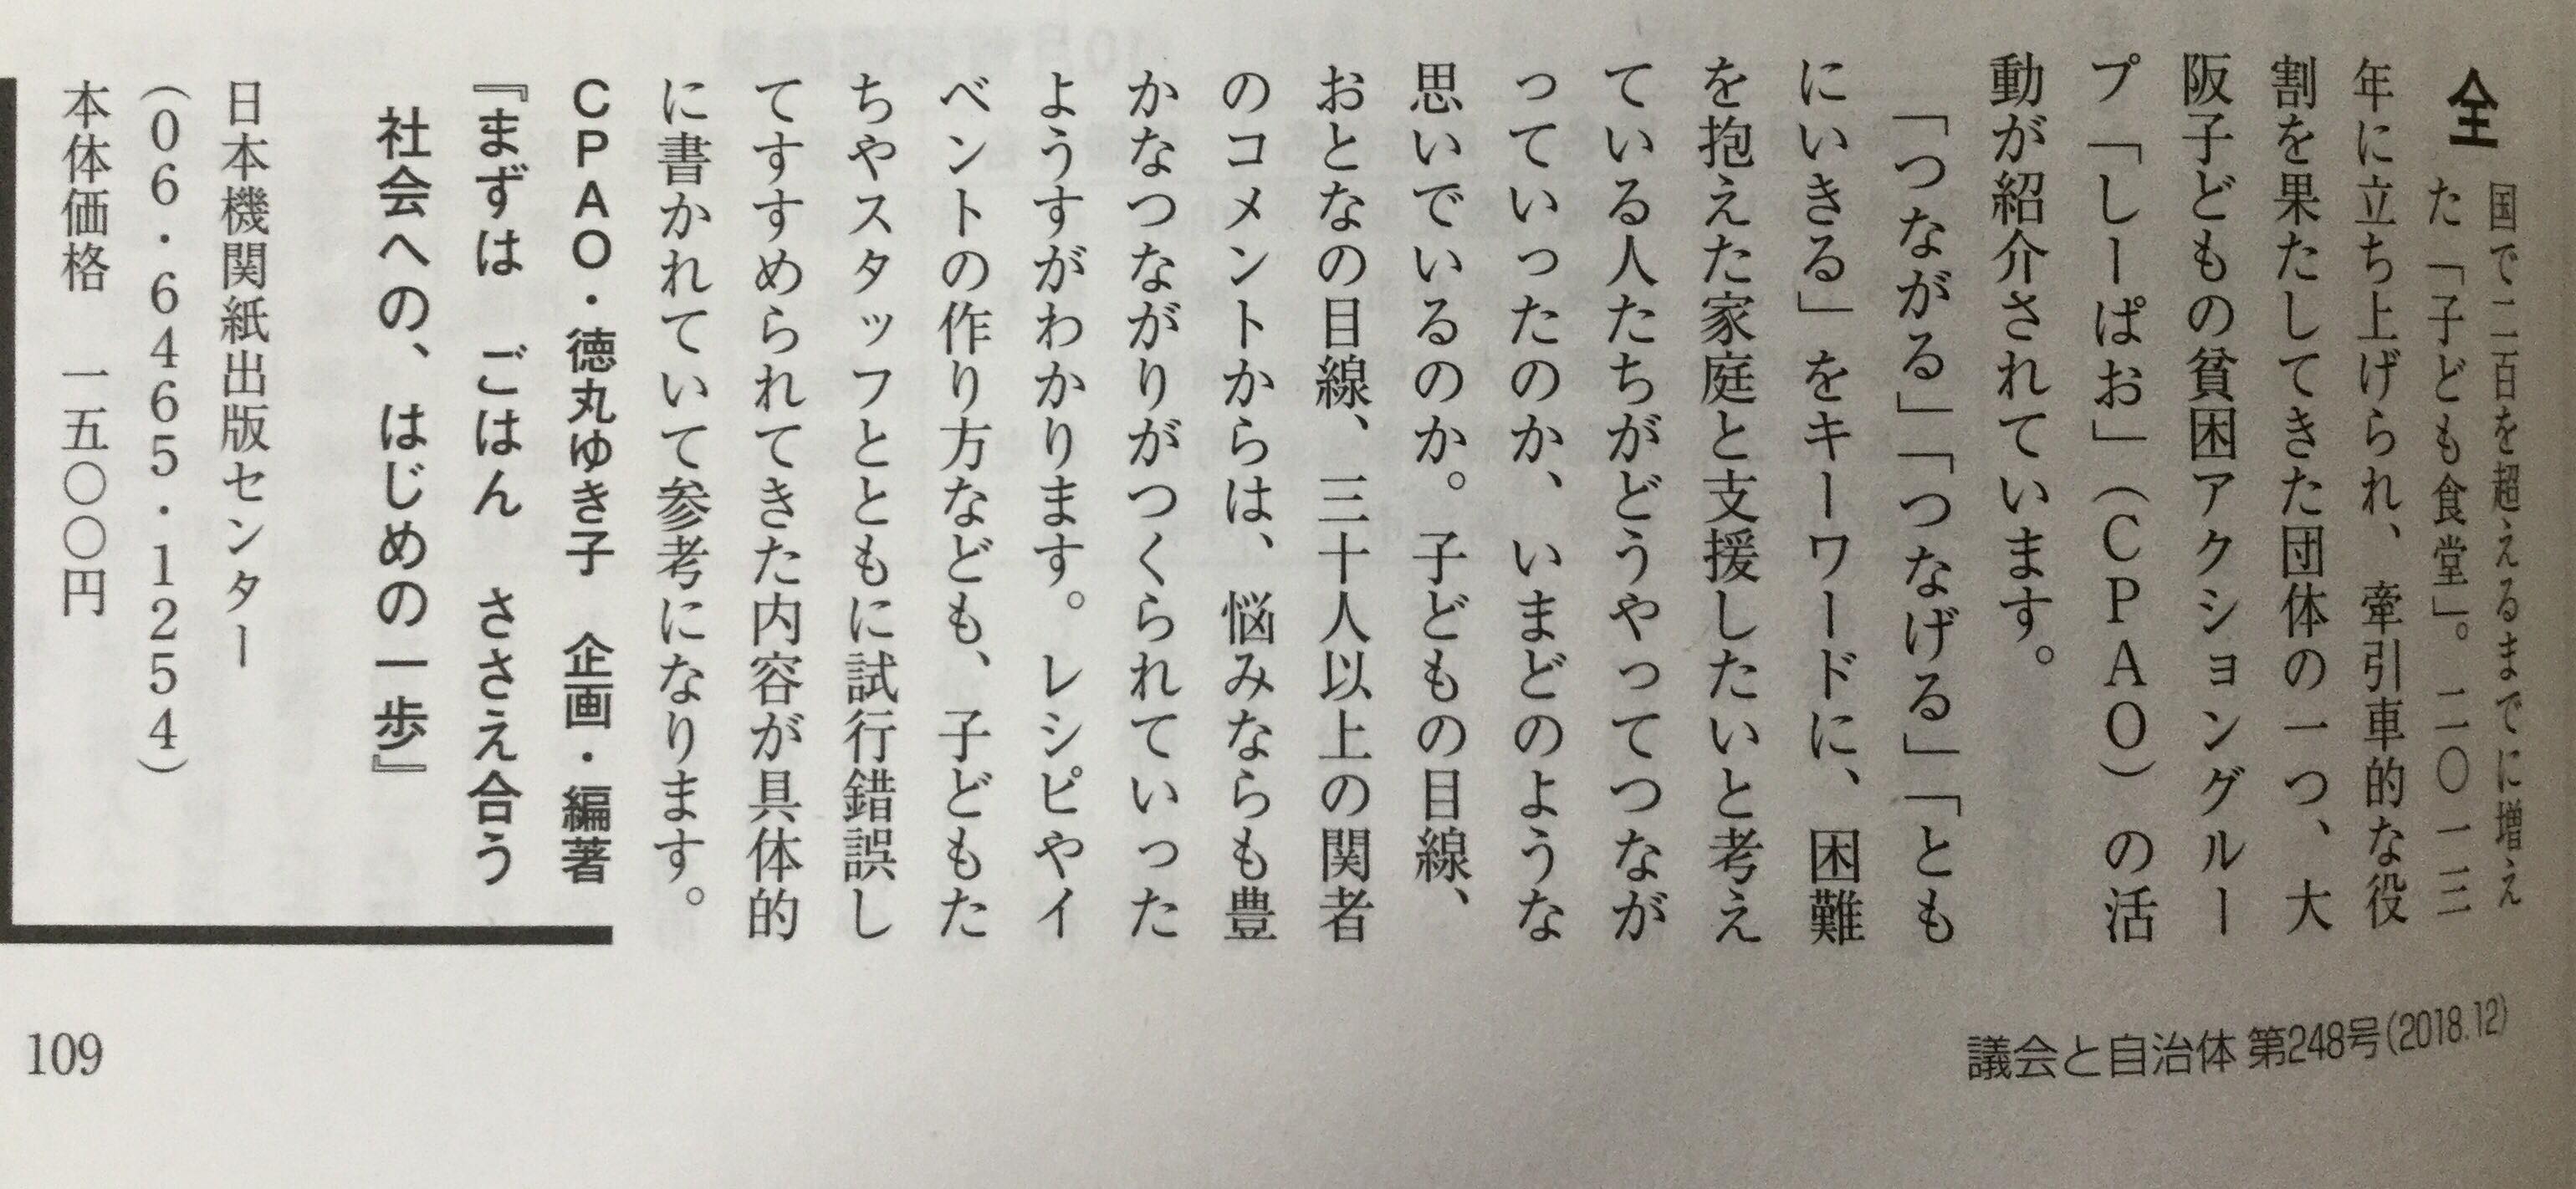 全国で二百を超えるまでに増え
た「子ども食堂」。二〇一三
年に立ち上げられ、牽引車的な役
割を果たしてきた団体の一つ、大
阪子どもの貧困アクショングルー
プ「しーぱお」（ＣＰＡＯ）の活
動が紹介されています。
「つながる」「つなげる」「とも
にいきる」をキーワードに、困難
を抱えた家庭と支援したいと考え
ている人たちがどうやってつなが
っていったのか、いまどのような
思いでいるのか。子どもの目線、
おとなの目線、三十人以上の関者
のコメントからは、悩みならも豊
かなつながりがつくられていった
ようすがわかります。レシピやイ
ベントの作り方なども、子どもた
ちやスタッフとともに試行錯誤し
てすすめられてきた内容が具体的
に書かれていて参考になります。
ＣＰＡＯ・徳丸ゆき子　企画・編著
『まずは　ごはん　ささえ合う
社会への、はじめの一歩』
日本機関紙出版センター
（06・6465・1254）
本体価格　一五〇〇円
議会と自治体 第248号(2018.12)
109